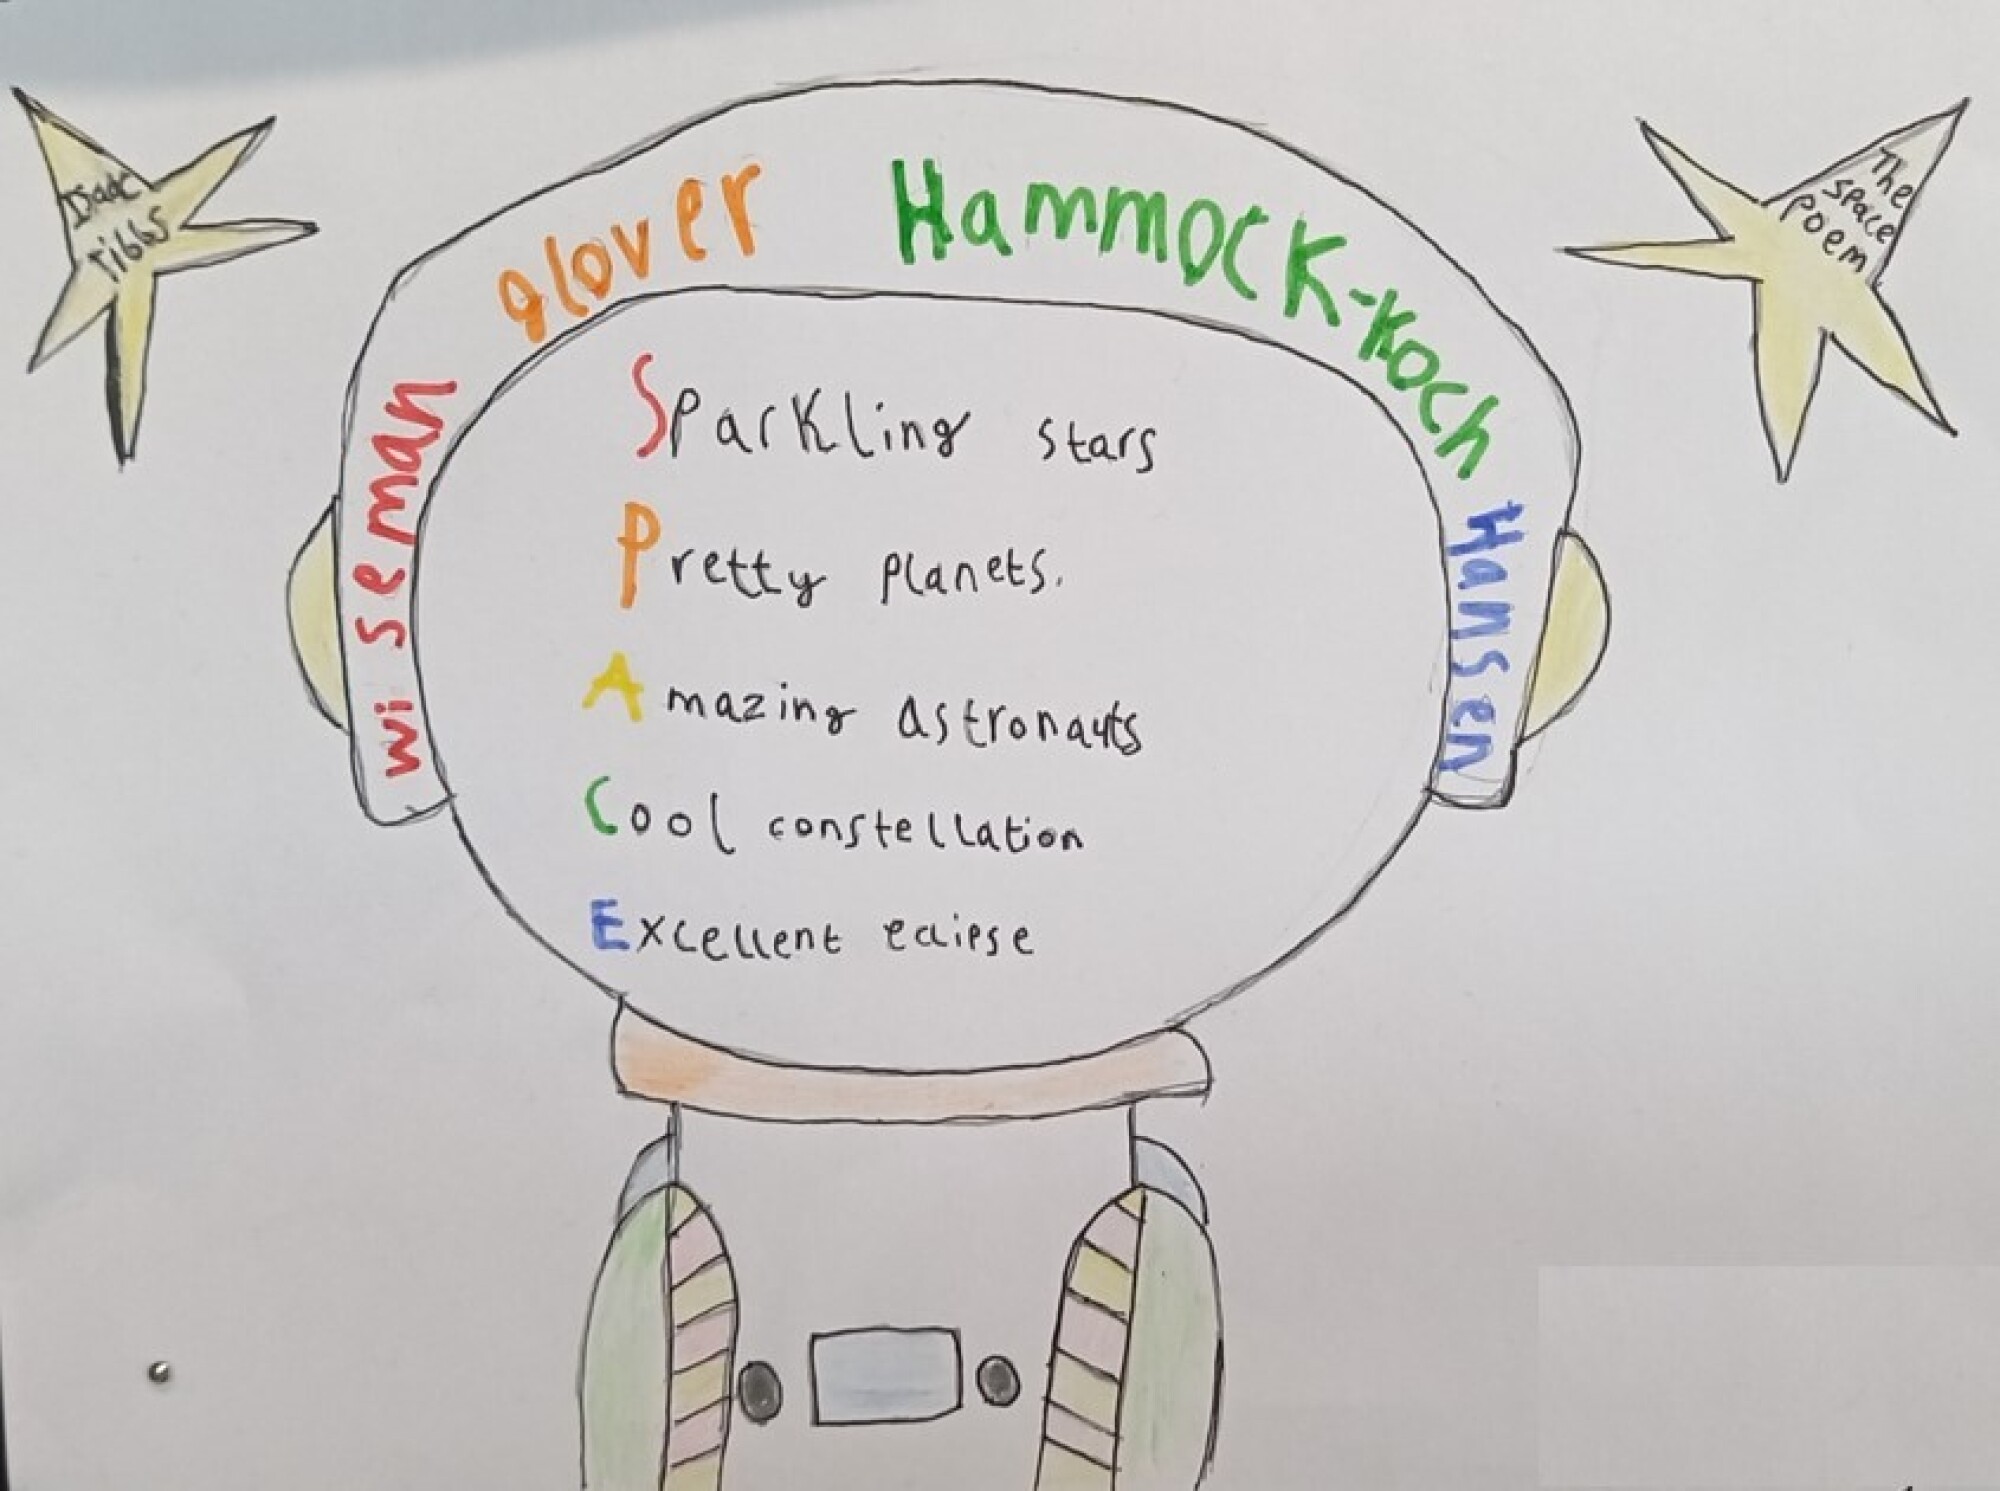 Isaac
Tibbs
The
space
poem
wiseman
glover
Hammock-Koch
Hansen
Sparkling stars
Pretty planets.
Amazing astronauts
Cool constellation
Excellent eclipse